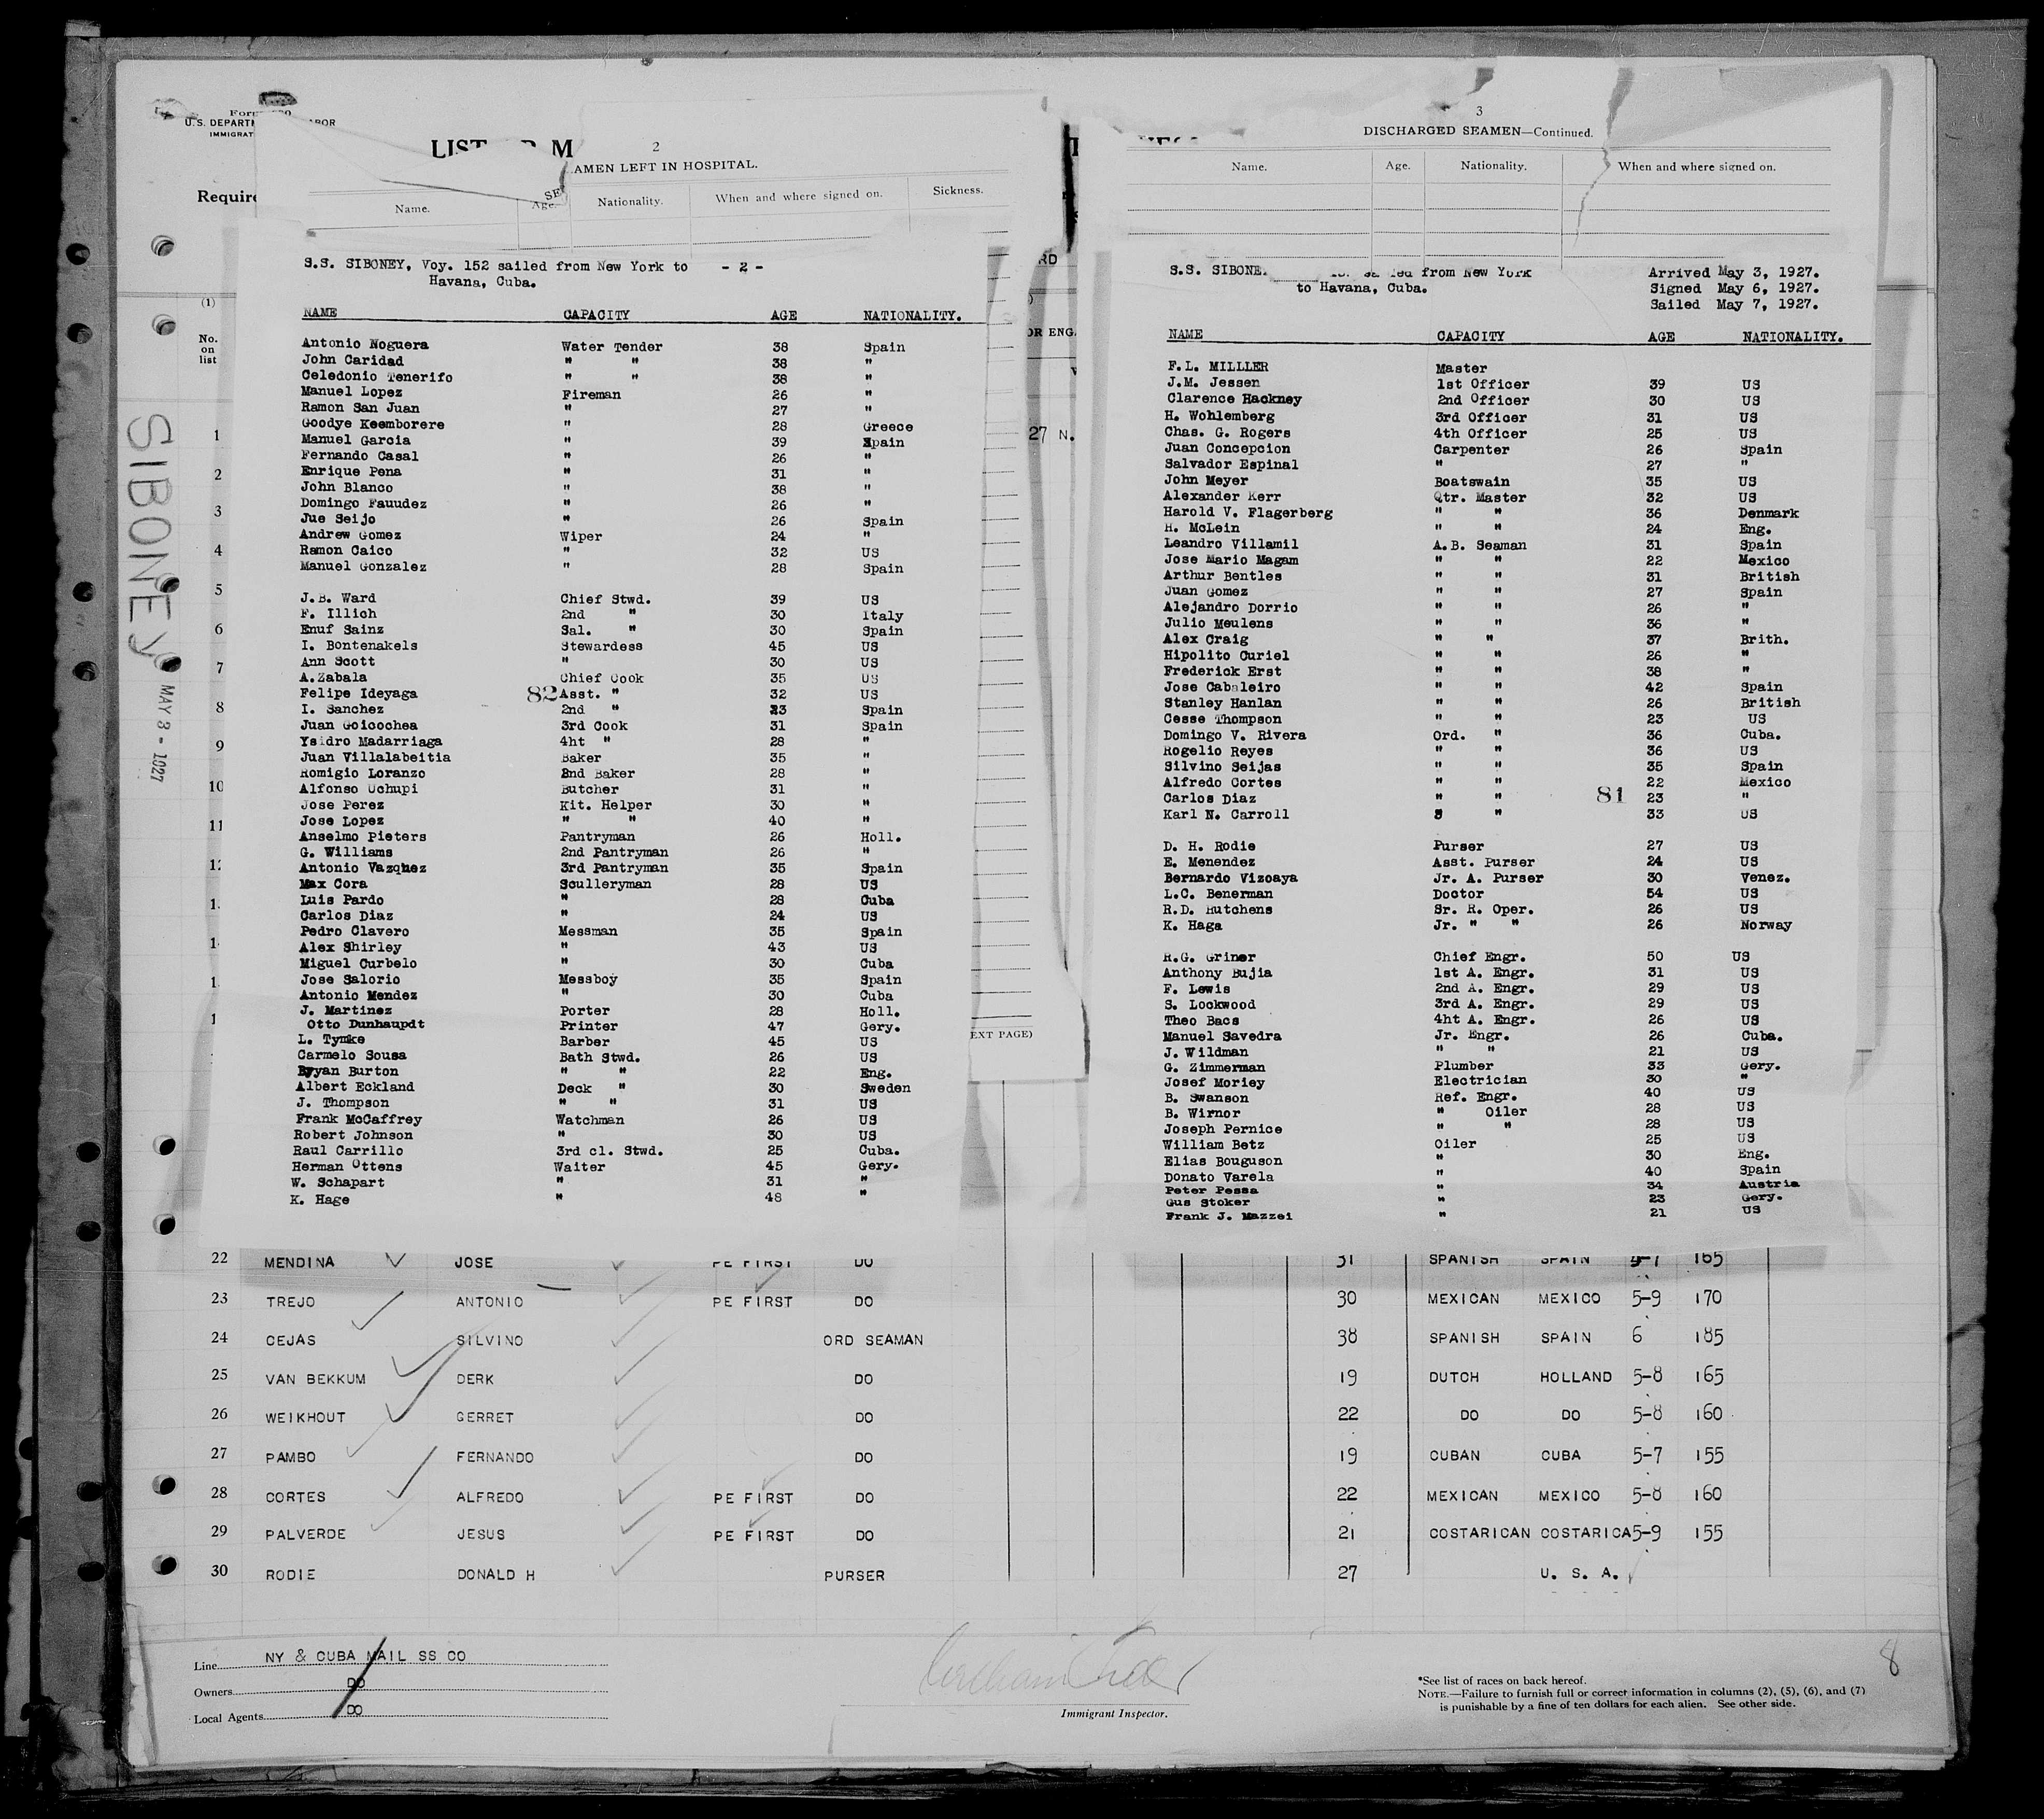 U.S. DEPARTM
ABOR
IMMIGRAT
LIST
M
Require
2
AMEN LEFT IN HOSPITAL.
SE
Name.
Age.
Nationality.
When and where signed on.
Sickness.
3
DISCHARGED SEAMEN—Continued.
Name.
Age.
Nationality.
When and where signed on.
S.S. SIBONEY, Voy. 152 sailed from New York to - 2 -
Havana, Cuba.
NAME CAPACITY AGE NATIONALITY.
Antonio Noguera Water Tender 38 Spain
John Caridad " " 38 "
Celedonio Tenerifo " " 38 "
Manuel Lopez Fireman 26 "
Ramon San Juan " 27 "
Goodye Keemborere " 28 Greece
Manuel Garcia " 39 Spain
Fernando Casal " 26 "
Enrique Pena " 31 "
John Blanco " 38 "
Domingo Fauudez " 26 "
Jue Seijo " 26 Spain
Andrew Gomez Wiper 24 "
Ramon Caico " 32 US
Manuel Gonzalez " 28 Spain
J.B. Ward Chief Stwd. 39 US
F. Illich 2nd " 30 Italy
Enuf Sainz Sal. " 30 Spain
I. Bontenakels Stewardess 45 US
Ann Scott " 30 US
A.Zabala Chief Cook 35 US
Felipe Ideyaga 82 Asst. " 32 US
I. Sanchez 2nd " 23 Spain
Juan Goicochea 3rd Cook 31 Spain
Ysidro Madarriaga 4ht " 28 "
Juan Villalabeitia Baker 35 "
Romigio Loranzo 2nd Baker 28 "
Alfonso Uchupi Butcher 31 "
Jose Perez Kit. Helper 30 "
Jose Lopez " " 40 "
Anselmo Pieters Pantryman 26 Holl.
G. Williams 2nd Pantryman 26 "
Antonio Vazquez 3rd Pantryman 35 Spain
Max Cora Sculleryman 28 US
Luis Pardo " 28 Cuba
Carlos Diaz " 24 US
Pedro Clavero Messman 35 Spain
Alex Shirley " 43 US
Miguel Curbelo " 30 Cuba
Jose Salorio Messboy 35 Spain
Antonio Mendez " 30 Cuba
J. Martinez Porter 28 Holl.
Otto Dunhaupdt Printer 47 Gery.
L. Tymke Barber 45 US
Carmelo Sousa Bath Stwd. 26 US
Bryan Burton " " 22 Eng.
Albert Eckland Deck " 30 Sweden
J. Thompson " " 31 US
Frank McCaffrey Watchman 26 US
Robert Johnson " 30 US
Raul Carrillo 3rd cl. Stwd. 25 Cuba.
Herman Ottens Waiter 45 Gery.
W. Schapart " 31 "
K. Hage " 48 "
S.S. SIBONE from New York
to Havana, Cuba.
Arrived May 3, 1927.
Signed May 6, 1927.
Sailed May 7, 1927.
NAME CAPACITY AGE NATIONALITY.
F.L. MILLLER Master
J.M. Jessen 1st Officer 39 US
Clarence Hackney 2nd Officer 30 US
H. Wohlemberg 3rd Officer 31 US
Chas. G. Rogers 4th Officer 25 US
Juan Concepcion Carpenter 26 Spain
Salvador Espinal " 27 "
John Meyer Boatswain 35 US
Alexander Kerr Qtr. Master 32 US
Harold V. Flagerberg " " 36 Denmark
H. McLein " " 24 Eng.
Leandro Villamil A.B. Seaman 31 Spain
Jose Mario Magam " " 22 Mexico
Arthur Bentles " " 31 British
Juan Gomez " " 27 Spain
Alejandro Dorrio " " 26 "
Julio Meulens " " 36 "
Alex Craig " " 37 Brith.
Hipolito Curiel " " 26 "
Frederick Erst " " 38 "
Jose Cabaleiro " " 42 Spain
Stanley Hanlan " " 26 British
Cesse Thompson " " 23 US
Domingo V. Rivera Ord. " 36 Cuba.
Rogelio Reyes " " 36 US
Silvino Seijas " " 35 Spain
Alfredo Cortes " " 22 Mexico
Carlos Diaz " " 81 23 "
Karl N. Carroll " 33 US
D. H. Rodie Purser 27 US
E. Menendez Asst. Purser 24 US
Bernardo Vizoaya Jr. A. Purser 30 Venez.
L.C. Benerman Doctor 54 US
R.D. Hutchens Sr. R. Oper. 26 US
K. Haga Jr. " " 26 Norway
R.G. Griner Chief Engr. 50 US
Anthony Bujia 1st A. Engr. 31 US
F. Lewis 2nd A. Engr. 29 US
S. Lockwood 3rd A. Engr. 29 US
Theo Bacs 4ht A. Engr. 26 US
Manuel Savedra Jr. Engr. 26 Cuba.
J. Wildman " " 21 US
G. Zimmerman Plumber 33 Gery.
Josef Morley Electrician 30 "
B. Swanson Ref. Engr. 40 US
B. Wirnor " Oiler 28 US
Joseph Pernice " " 28 US
William Betz Oiler 25 US
Elias Bouguson " 30 Eng.
Donato Varela " 40 Spain
Peter Pessa " 34 Austria
Gus Stoker " 23 Gery.
Frank J. Mazzei " 21 US
(1)
No. on list
1
2
3
4
5
6
7
8
9
10
11
SIBONEY
MAY 3 - 1927
RD
OR ENG.
27 N.
EXT PAGE)
22 MENDINA JOSE PE FIRST DO 31 SPANISH SPAIN 5-7 165
23 TREJO ANTONIO PE FIRST DO 30 MEXICAN MEXICO 5-9 170
24 CEJAS SILVINO ORD SEAMAN 38 SPANISH SPAIN 6 185
25 VAN BEKKUM DERK DO 19 DUTCH HOLLAND 5-8 165
26 WEIKHOUT GERRET DO 22 DO DO 5-8 160
27 PAMBO FERNANDO DO 19 CUBAN CUBA 5-7 155
28 CORTES ALFREDO PE FIRST DO 22 MEXICAN MEXICO 5-8 160
29 PALVERDE JESUS PE FIRST DO 21 COSTARICAN COSTARICA 5-9 155
30 RODIE DONALD H PURSER 27 U. S. A.
Line NY & CUBA MAIL SS CO
Owners DO
Local Agents DO
Immigrant Inspector.
8
*See list of races on back hereof.
NOTE.—Failure to furnish full or correct information in columns (2), (5), (6), and (7)
is punishable by a fine of ten dollars for each alien. See other side.